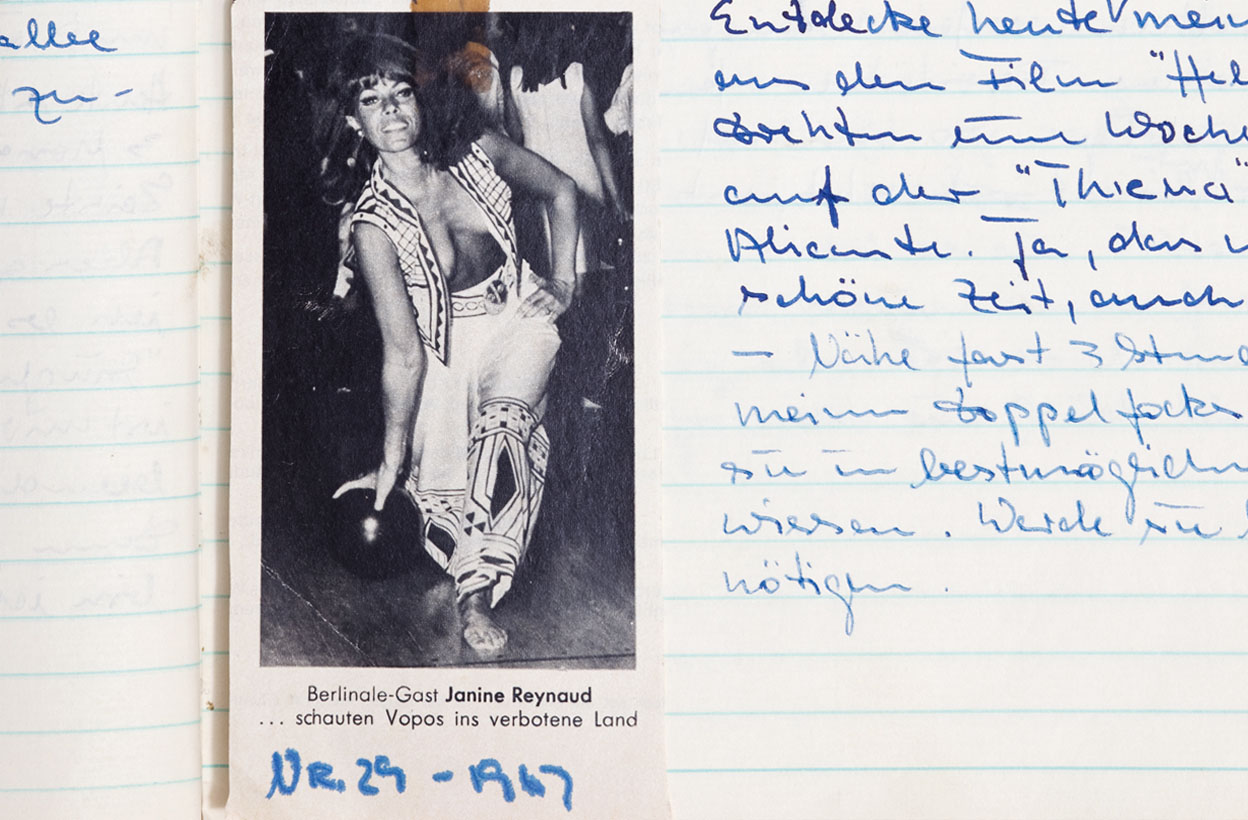 allee
zu-
Berlinale-Gast Janine Reynaud
... schauten Vopos ins verbotene Land
Nr. 29 - 1967
Entdecke heute mein
aus dem Film "Hel
drehten eine Woche
auf der "Thiena"
Alicante. Ja, das
schöne Zeit, auch
- Nähe fast 3 Stun
meinem Doppelfocks
sie in bestmöglich
wissen. Werde sie
nötigen.